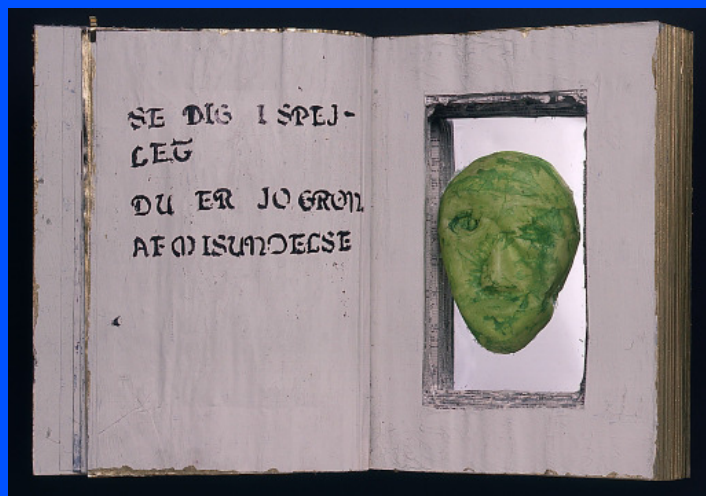 SE DIG I SPEJ-
LET
DU ER JO GRØN
AF MISUNDELSE